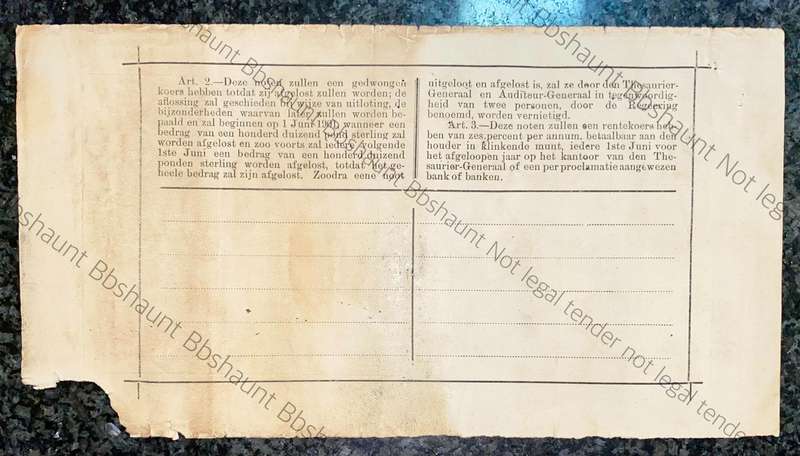 Art. 2.—Deze noten zullen een gedwongen
koers hebben totdat zij afgelost zullen worden; de
aflossing zal geschieden bij wijze van uitloting, de
bijzonderheden waarvan later zullen worden be-
paald en zal beginnen op 1 Juni wanneer een
bedrag van een honderd duizend pond sterling zal
worden afgelost en zoo voorts zal iedere volgende
1ste Juni een bedrag van een honderd duizend
ponden sterling worden afgelost, totdat het ge-
heele bedrag zal zijn afgelost. Zoodra eene noot
uitgeloot en afgelost is, zal ze door den Thesaurier-
Generaal en Auditeur-Generaal in tegenwoordig-
heid van twee personen, door de Regeering
benoemd, worden vernietigd.
Art. 3.—Deze noten zullen een rentekoers heb-
ben van zes percent per annum, betaalbaar aan den
houder in klinkende munt, iedere 1ste Juni voor
het afgeloopen jaar op het kantoor van den The-
saurier-Generaal of een per proclamatie aangewezen
bank of banken.
Bbshaunt Bbshaunt Bbshaunt Not legal tender
Bbshaunt Bbshaunt Bbshaunt Not legal tender not legal tender
Bbshaunt Bbshaunt Bbshaunt Bbshaunt